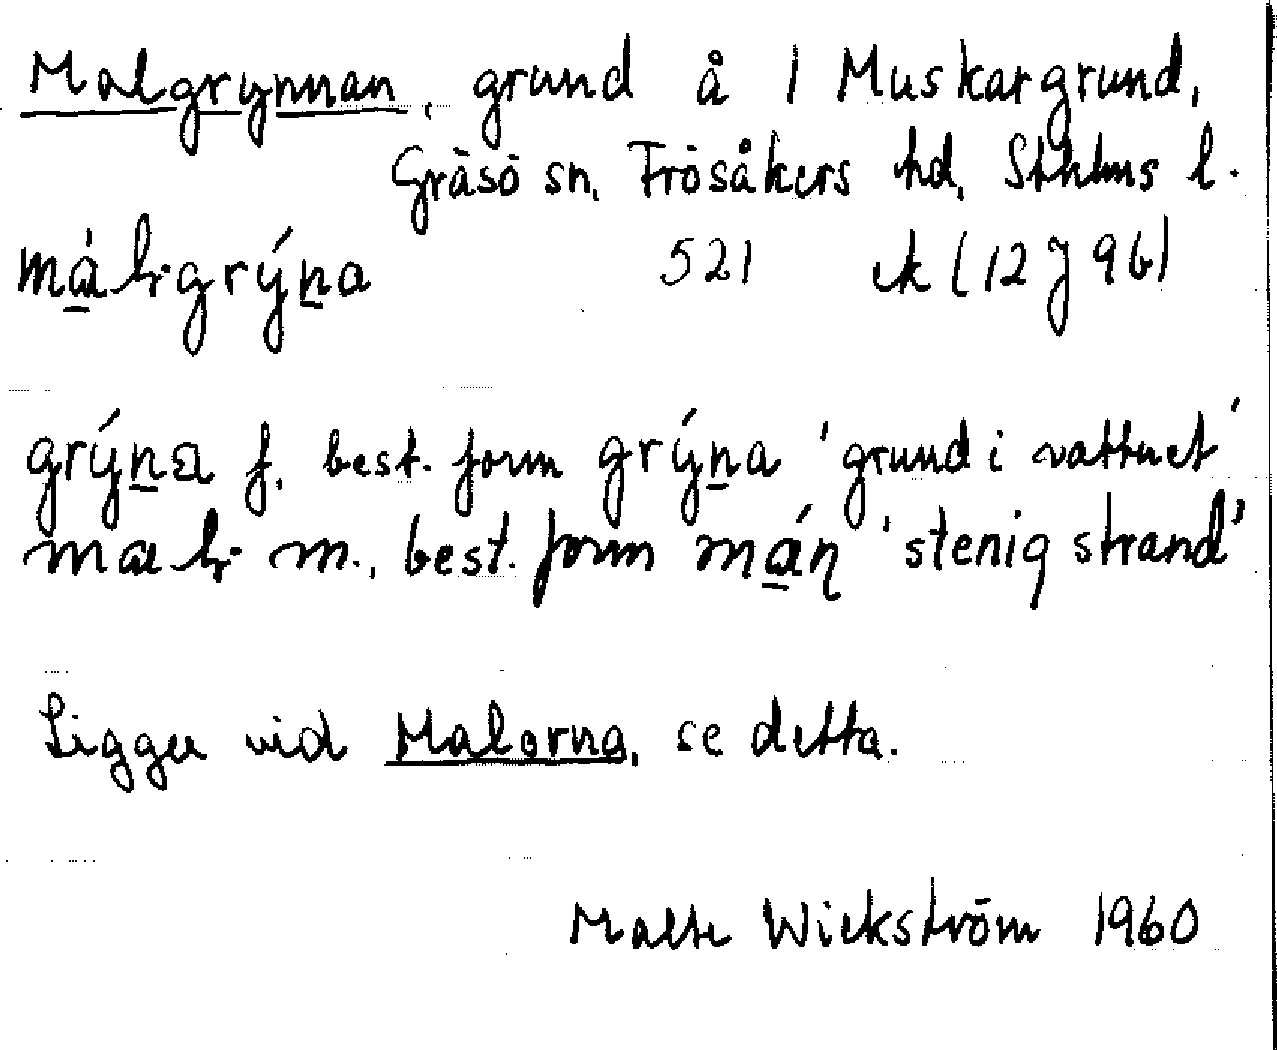 Malgrynnan, grund å 1 Muskargrund,
Gräsö sn, Frösåkers hd, Sthlms l.
má̱ɫgrýṉa 521 ek (12 J 9b)
grýṉa f. best. form grýṉa 'grund i vattnet'
maɫ m., best. form má̱ṇ 'stenig strand'
Ligger vid Malorna, se detta.
Malte Wickström 1960